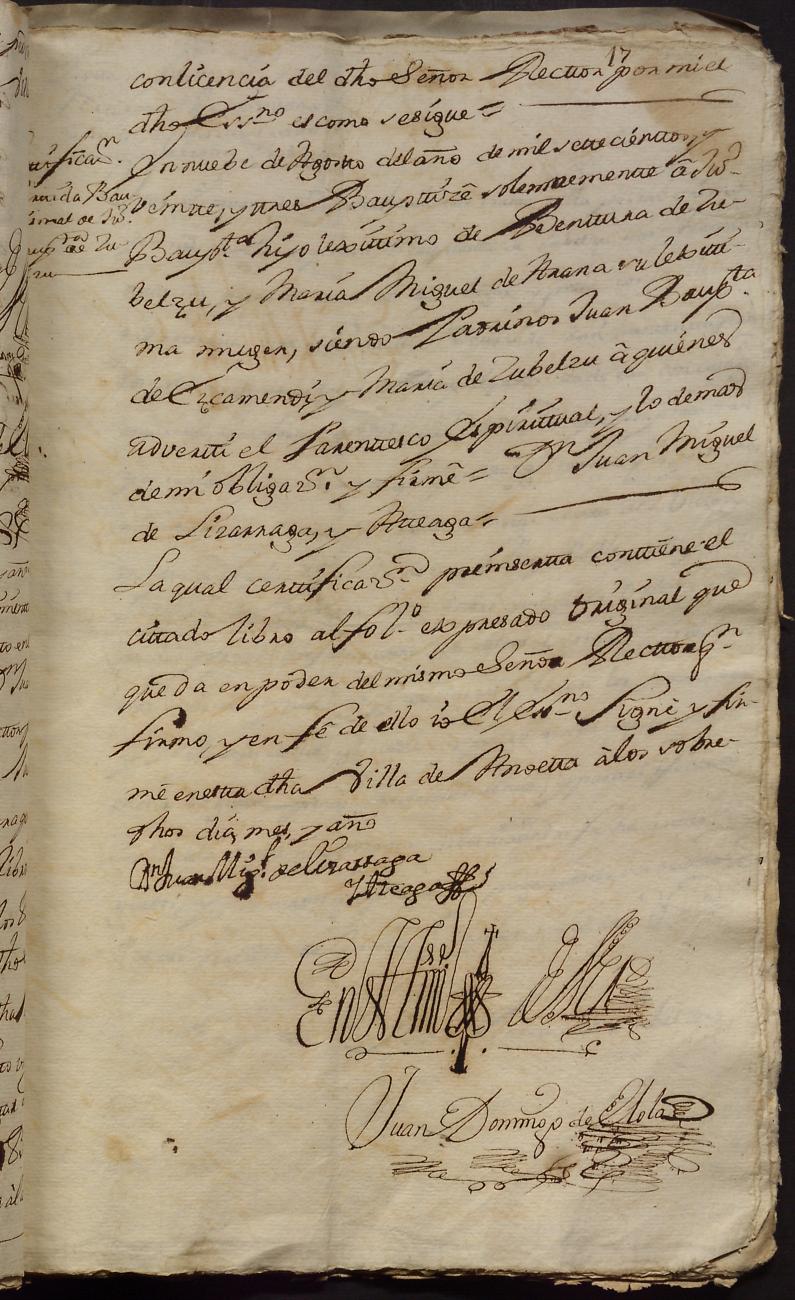 17
con licencia del dho Señor Rector por mi el
dho Essno es como se sigue =
En nuebe de Agosto del año de mil setecienttos y
veintte, y ttres Bauptticé solemnemente â Jun
Baupta hijo lexittimo de Benttura de Zu-
belzu, y Maria Miguel de Arana su lexitti-
ma muger, siendo Padrinos Juan Baupta
de Eizcamendi y Maria de Zubelzu â quienes
adverttí el Parenttesco Espirittual, y lo demas
de mi obligazn. y firmê = Dn Juan Miguel
de Lizarraga, y Atteaga =
La qual certtificazn preinsertta conttiene el
cittado libro al folo expresado original que
queda en poder del mismo Señor Rector qn
firmo, y en fê de ello io El Essno Signé y fir-
mé en estta dha Villa de Anoetta â los sobre-
dhos dia, mes, y año
Dn Juan Migl de Lizarraga
Y Atteaga
En ttesttimo de Verd
Juan Domingo de Elola